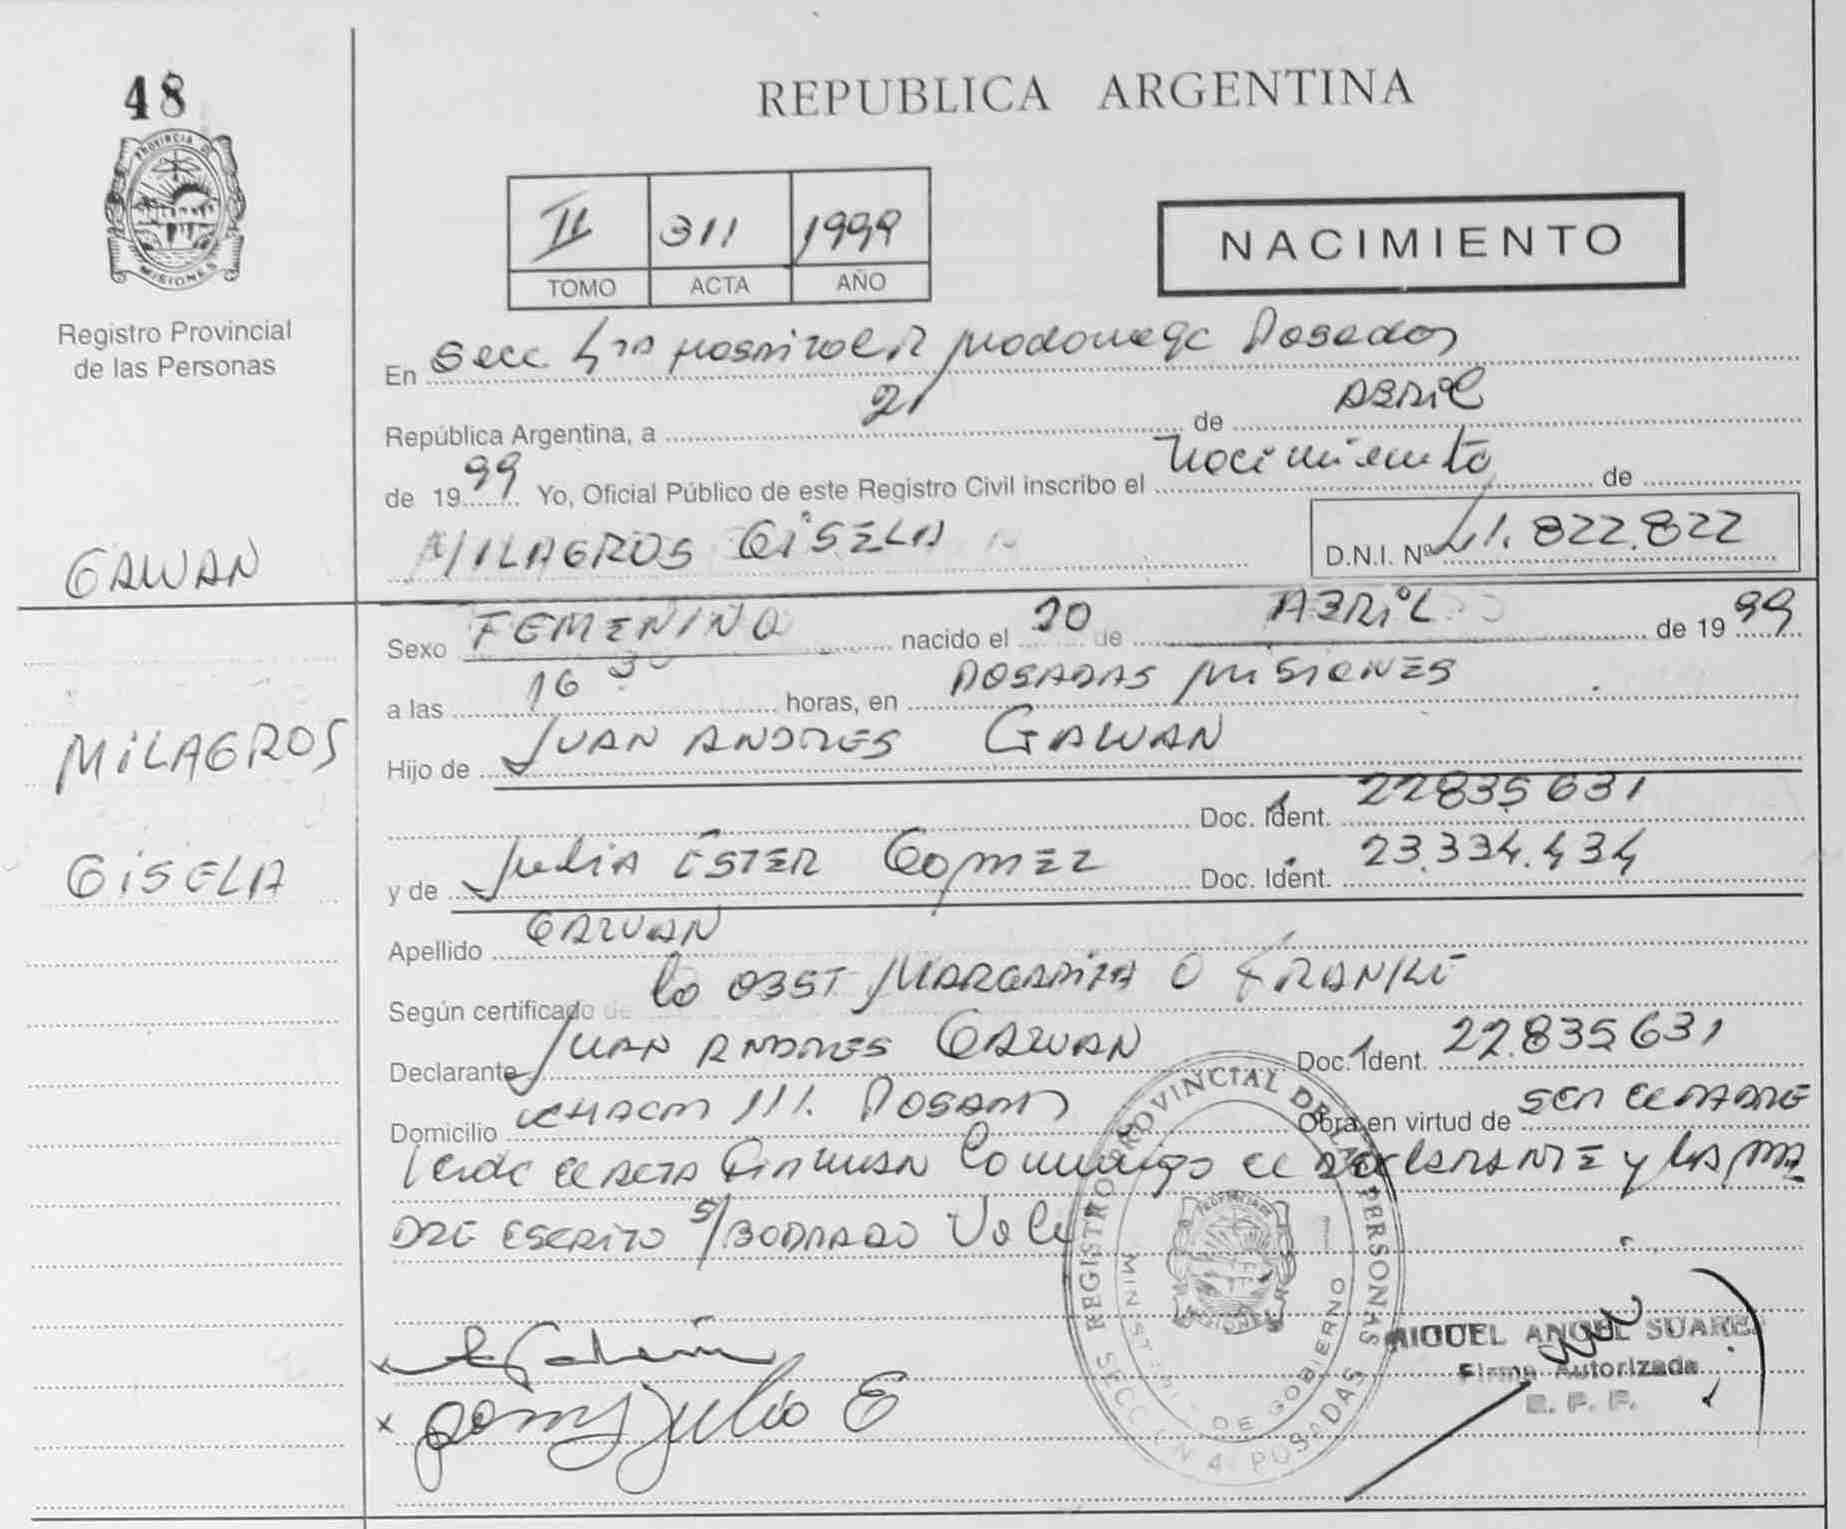 48
PROVINCIA DE
MISIONES
Registro Provincial
de las Personas
REPUBLICA ARGENTINA
II 311 1999
TOMO ACTA AÑO
NACIMIENTO
En Secc 4ta Hospital R Madariaga Posadas
República Argentina, a 21 de ABRIL
de 1999 Yo, Oficial Público de este Registro Civil inscribo el Nacimiento de
MILAGROS GISELA
D.N.I. Nº 41.822.822
GALVAN
MILAGROS
GISELA
Sexo FEMENINO nacido el 20 de ABRIL de 1999
a las 16 30 horas, en POSADAS MISIONES
Hijo de JUAN ANDRES GALVAN
Doc. Ident. 22835631
y de Julia ESTER GOMEZ Doc. Ident. 23.334.434
Apellido GALVAN
Según certificado de la OBST MARGARITA O FRANKE
Declarante JUAN ANDRES GALVAN Doc. Ident. 22.835631
Domicilio CHACO 111. POSADAS Obra en virtud de SER EL PADRE
Leida el ACTA FIRMAN Conmigo el DECLARANTE y LA MA
DRE ESCRITO S/BORRADO Vale
Gomez Julia E
REGISTRO PROVINCIAL DE LAS PERSONAS
MINISTERIO DE GOBIERNO
SECCION 4 POSADAS
MIGUEL ANGEL SUAREZ
Firma Autorizada
R. P. P.